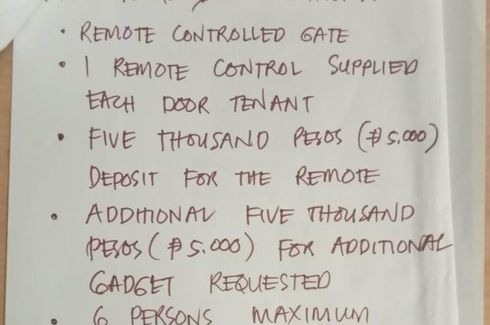 • REMOTE CONTROLLED GATE
• 1 REMOTE CONTROL SUPPLIED
EACH DOOR TENANT
• FIVE THOUSAND PESOS (₱5,000)
DEPOSIT FOR THE REMOTE
• ADDITIONAL FIVE THOUSAND
PESOS (₱5,000) FOR ADDITIONAL
GADGET REQUESTED
• 6 PERSONS MAXIMUM